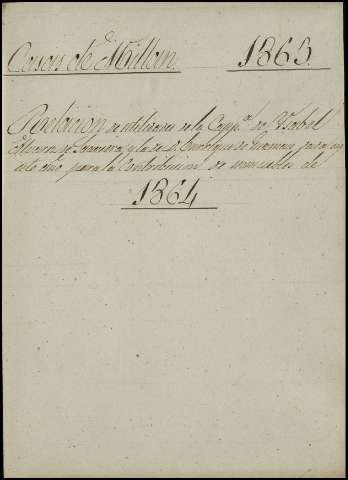 Casas de Millan. 1863.
Relacion de utilidades de la Capp.ª de Ysabel
y la de D. Enrrique de Guzman para
este año para la Contribucion de inmuebles de
1864